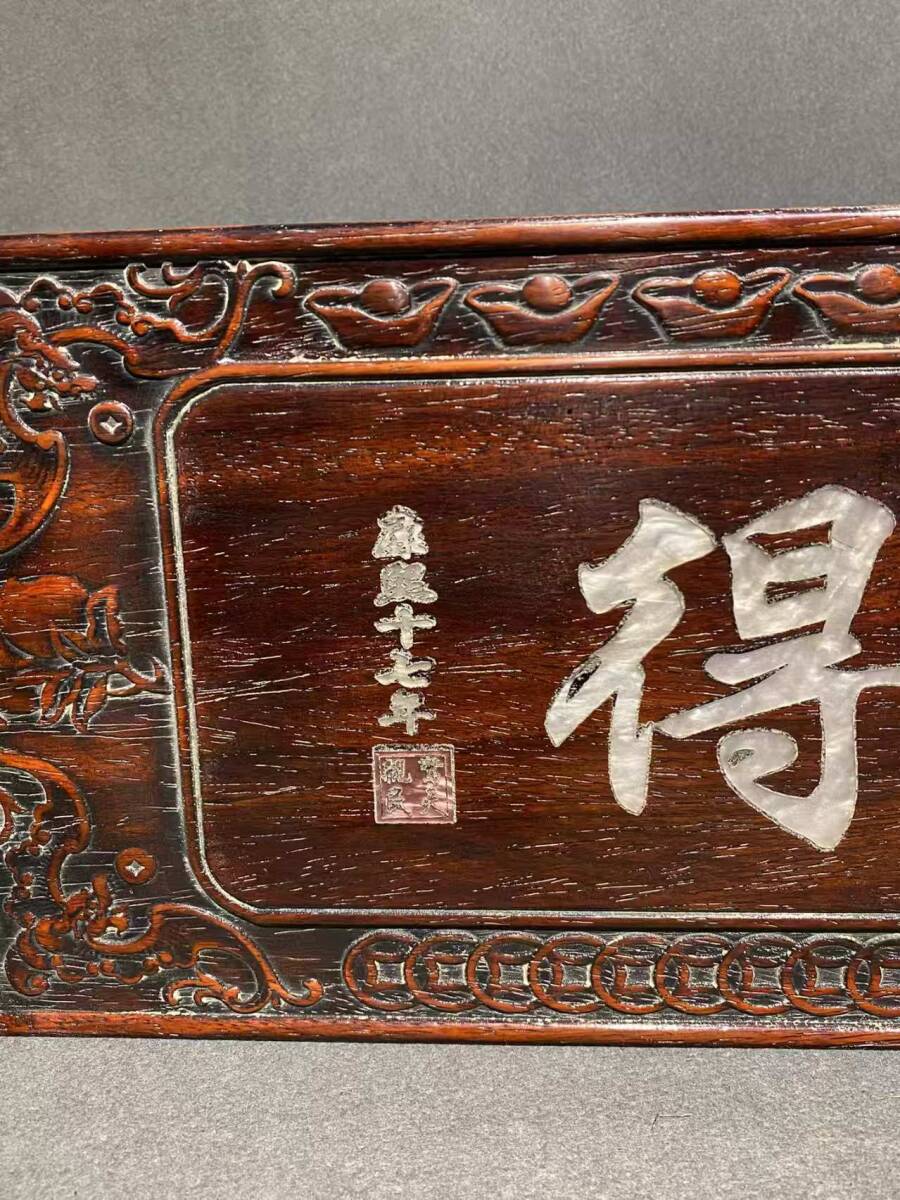 得
康熙十七年